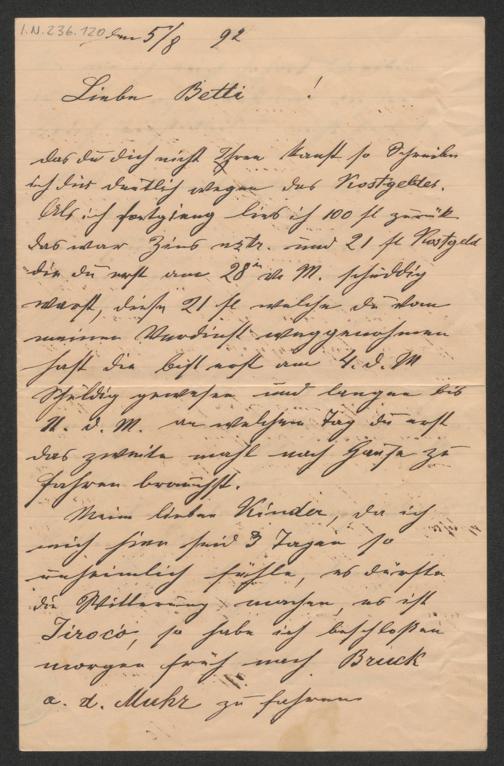 I.N. 236.120
den 5/8 92
Liebe Betti !
das du dich nicht Ihren kanst so Schreibe
ich dir deutlich wegen das Kostgeldes.
Als ich fortgieng lies ich 100 fl zurük
das war Zins etz. und 21 fl Kostgeld
die du erst am 28ten v. M. schuldig
warst, diese 21 fl welche du vom
meinen Verdienst weggenohmen
hast die bist erst am 4. d. M
Schuldig gewesen und langen bis
11. d. M. an welchem Tag du erst
das zweite mahl nach Hause zu
fahren brauchst.
Meine lieben Kinder, da ich
mich hier seid 3 Tagen so
unheimlich fühle, es dürfte
die Witterung machen, es ist
Siroco, so habe ich beschloßen
morgen früh nach Bruck
a. d. Muhr zu fahren